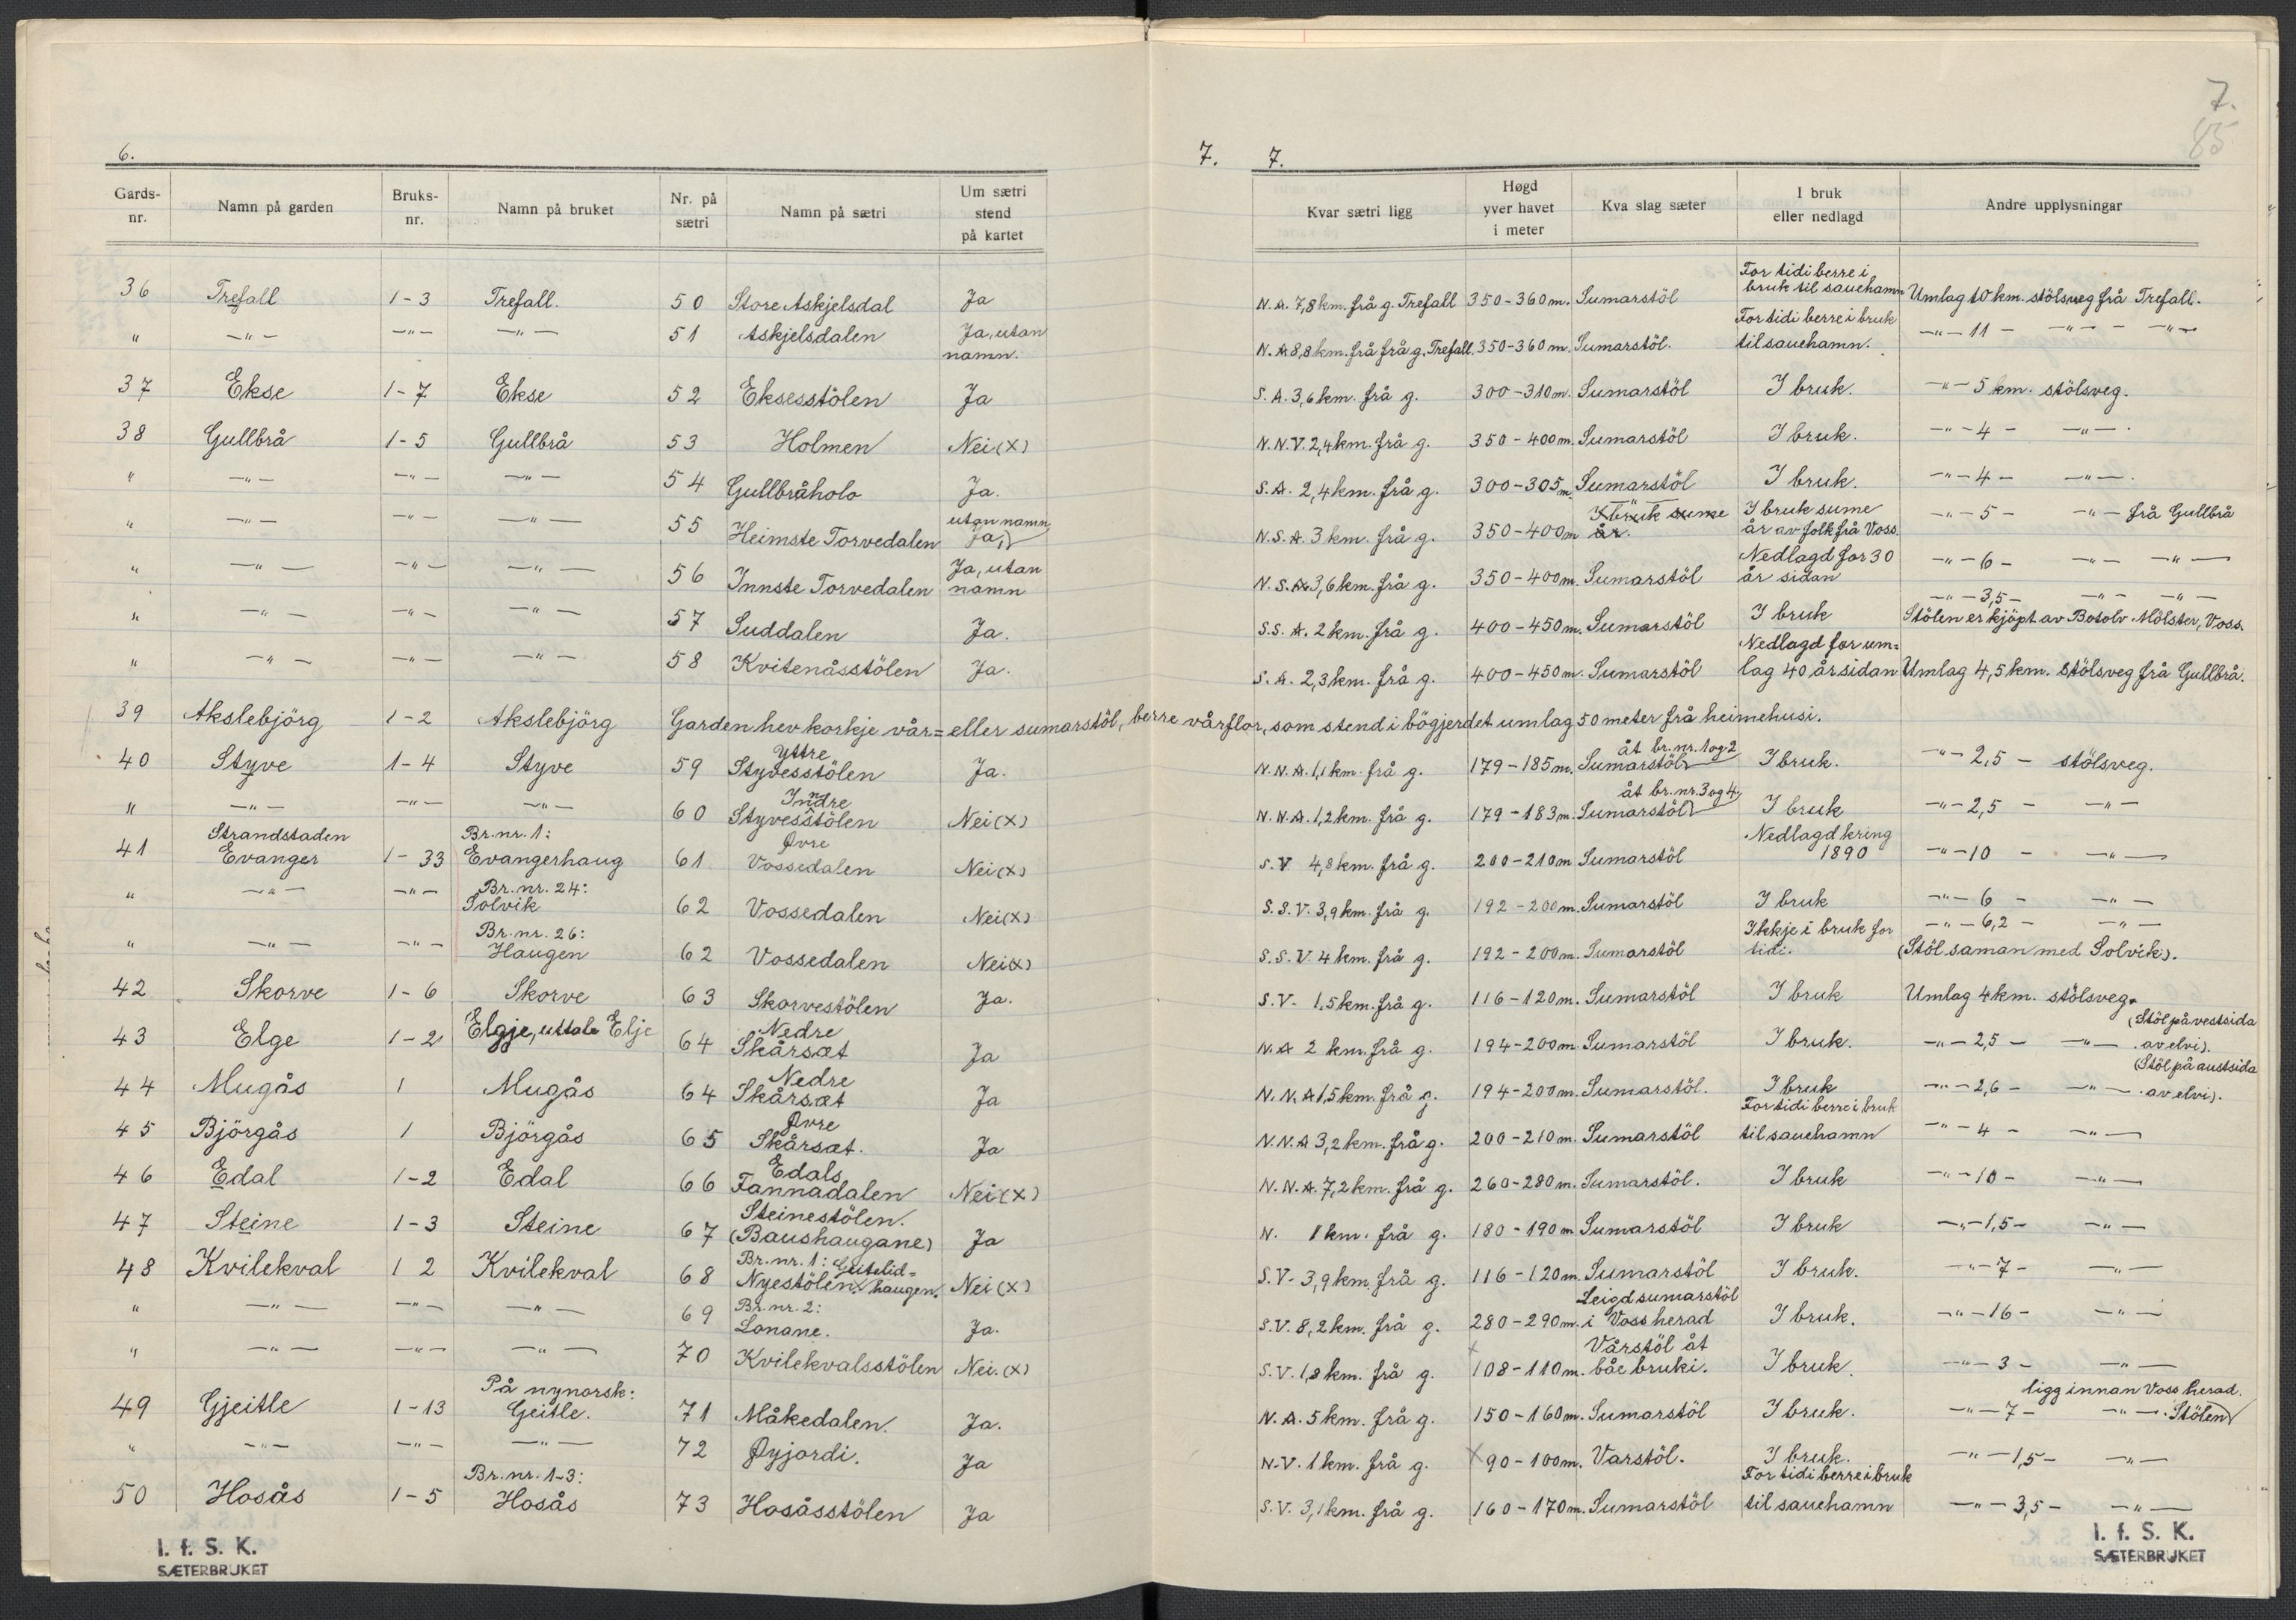 6.
Gards-nr. Namn på garden Bruks-nr. Namn på bruket Nr. på sætri Namn på sætri Um sætri stend på kartet
36 Trefall 1-3 Trefall. 50 Store Askjelsdal Ja
" —"— —"— —"— 51 Askjelsdalen Ja, utan namn.
37 Ekse 1-7 Ekse 52 Eksesstölen Ja
38 Gullbrå 1-5 Gullbrå 53 Holmen Nei (x)
" —"— —"— —"— 54 Gullbråholo Ja.
" —"— —"— —"— 55 Heimste Torvedalen Ja, utan namn
" —"— —"— —"— 56 Innste Torvedalen Ja, utan namn
" —"— —"— —"— 57 Suddalen Ja.
" —"— —"— —"— 58 Kvitenåsstölen Ja.
39 Akslebjörg 1-2 Akslebjörg Garden hev korkje vår= eller sumarstöl, berre vårflor, som stend i bögjerdet umlag 50 meter frå heimehusi.
40 Styve 1-4 Styve 59 Yttre Styvesstölen Ja.
" —"— —"— —"— 60 Indre Styvesstölen Nei (x)
41 Strandstaden Evanger 1-33 Br.nr. 1: Evangerhaug 61 Øvre Vossedalen Nei (x)
" —"— —"— Br.nr. 24: Solvik 62 Vossedalen Nei (x)
" —"— —"— Br.nr. 26: Haugen 62 Vossedalen Nei (x)
42 Skorve 1-6 Skorve 63 Skorvestölen Ja.
43 Elge 1-2 Elgje, uttale Elje 64 Nedre Skårsæt Ja
44 Mugås 1 Mugås 64 Nedre Skårsæt Ja
45 Björgås 1 Björgås 65 Øvre Skårsæt. Ja
46 Edal 1-2 Edal 66 Edals Fannadalen Nei (x)
47 Steine 1-3 Steine 67 Steinestölen. (Baushaugane) Ja
48 Kvilekval 1 2 Kvilekval 68 Br.nr. 1: Nyestölen. Geitelid=haugen. Nei (x)
" —"— —"— —"— 69 Br.nr. 2: Lonane. Ja.
" —"— —"— —"— 70 Kvilekvalsstölen Nei. (x)
49 Gjeitle 1-13 På nynorsk: Geitle. 71 Måkedalen. Ja.
" —"— —"— —"— 72 Øyjordi. Ja
50 Hosås 1-5 Br.nr. 1-3: Hosås 73 Hosåsstölen Ja
I. f. S. K.
SÆTERBRUKET
7.
85
7. 7.
Kvar sætri ligg Høgd yver havet i meter Kva slag sæter I bruk eller nedlagd Andre upplysningar
N.A. 7,8 km. frå g. Trefall 350-360 m. Sumarstöl For tidi berre i bruk til sauehamn Umlag 10 km. stölsveg frå Trefall.
N.A. 8,8 km. frå frå g. Trefall. 350-360 m. Sumarstöl. For tidi berre i bruk til sauehamn. —"— 11 — —"— —"—
S.A. 3,6 km. frå g. 300-310 m. Sumarstöl I bruk. —"— 5 km. stölsveg.
N.N.V. 2,4 km. frå g. 350-400 m. Sumarstöl I bruk. —"— 4 — —"—.
S.A. 2,4 km. frå g. 300-305 m. Sumarstöl I bruk. —"— 4 — —"—.
N.S.A. 3 km. frå g. 350-400 m I bruk sume år. I bruk sume år av folk frå Voss. —"— 5 — —"— frå Gullbrå
N.S.A. 3,6 km. frå g. 350-400 m. Sumarstöl Nedlagd for 30 år sidan —"— 6 — —"— —"—
S.S.A. 2 km. frå g. 400-450 m. Sumarstöl I bruk —"— 3,5 — —"— —"— Stölen er kjöpt av Botolv Mölster, Voss.
S.A. 2,3 km. frå g. 400-450 m. Sumarstöl Nedlagd for um=lag 40 år sidan Umlag 4,5 km. stölsveg frå Gullbrå.
N.N.A. 1,1 km. frå g. 179-185 m. Sumarstöl åt br.nr. 1 og 2 I bruk. —"— 2,5 — stölsveg.
N.N.A. 1,2 km. frå g. 179-183 m. Sumarstöl åt br.nr. 3 og 4 I bruk —"— 2,5 — —"—
S.V 4,8 km. frå g. 200-210 m Sumarstöl Nedlagd kring 1890 —"— 10 — —"—
S.S.V. 3,9 km. frå g. 192-200 m. Sumarstöl I bruk —"— 6 — —"—
S.S.V. 4 km. frå g. 192-200 m. Sumarstöl Ikkje i bruk for tidi. —"— 6,2 — —"— (Stöl saman med Solvik).
S.V. 1,5 km. frå g. 116-120 m. Sumarstöl I bruk Umlag 4 km. stölsveg.
N.A 2 km. frå g. 194-200 m. Sumarstöl I bruk. —"— 2,5 — —"— (Stöl på vestsida av elvi).
N.N.A 1,5 km. frå g. 194-200 m. Sumarstöl. I bruk —"— 2,6 — —"— (Stöl på austsida av elvi).
N.N.A 3,2 km. frå g. 200-210 m. Sumarstöl For tidi berre i bruk til sauehamn —"— 4 — —"—
N.N.A. 7,2 km. frå g. 260-280 m. Sumarstöl. I bruk —"— 10 — —"—
N. 1 km. frå g. 180-190 m Sumarstöl I bruk —"— 1,5 — —"—
S.V. 3,9 km. frå g. 116-120 m. Sumarstöl I bruk. —"— 7 — —"—
S.V. 8,2 km. frå g. 280-290 m. Leigd sumarstöl i Voss herad I bruk. —"— 16 — —"—
S.V. 1,8 km. frå g. x 108-110 m. Vårstöl åt båe bruki. I bruk. —"— 3 — —"—
N.A. 5 km. frå g. 150-160 m. Sumarstöl I bruk. —"— 7 — —"—. Stölen ligg innan Voss herad.
N.V. 1 km. frå g. x 90-100 m. Varstöl. I bruk. —"— 1,5 — —"—
S.V. 3,1 km. frå g. 160-170 m. Sumarstöl For tidi berre i bruk til sauehamn —"— 3,5 — —"—
I. f. S. K.
SÆTERBRUKET